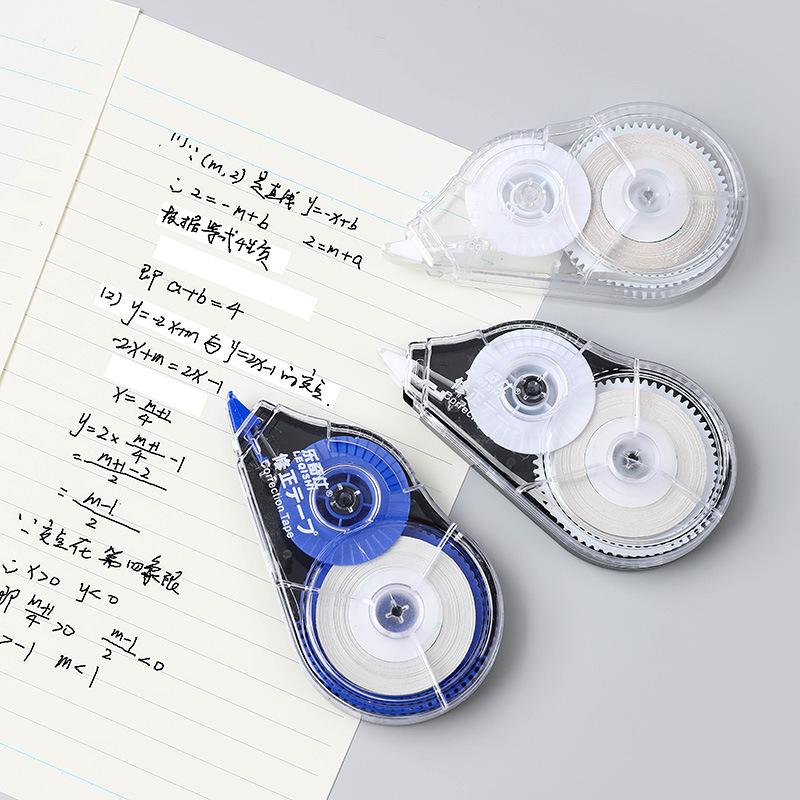 ∵ (m, 2) 是直线 y=-x+b
∴ 2=-m+b 2=m+a
根据等式性质
即 a+b=4
(2) y=-2x+m 与 y=2x-1 的交点
-2x+m=2x-1
x=\frac{m+1}{4}
y=2x·\frac{m+1}{4}-1
=\frac{m+1-2}{2}
=\frac{m-1}{2}
∵ 交点在第四象限
∴ x>0 y<0
即 \frac{m+1}{4}>0 \frac{m-1}{2}<0
>-1 m<1
LEQISHI
修正テープ
Correction Tape